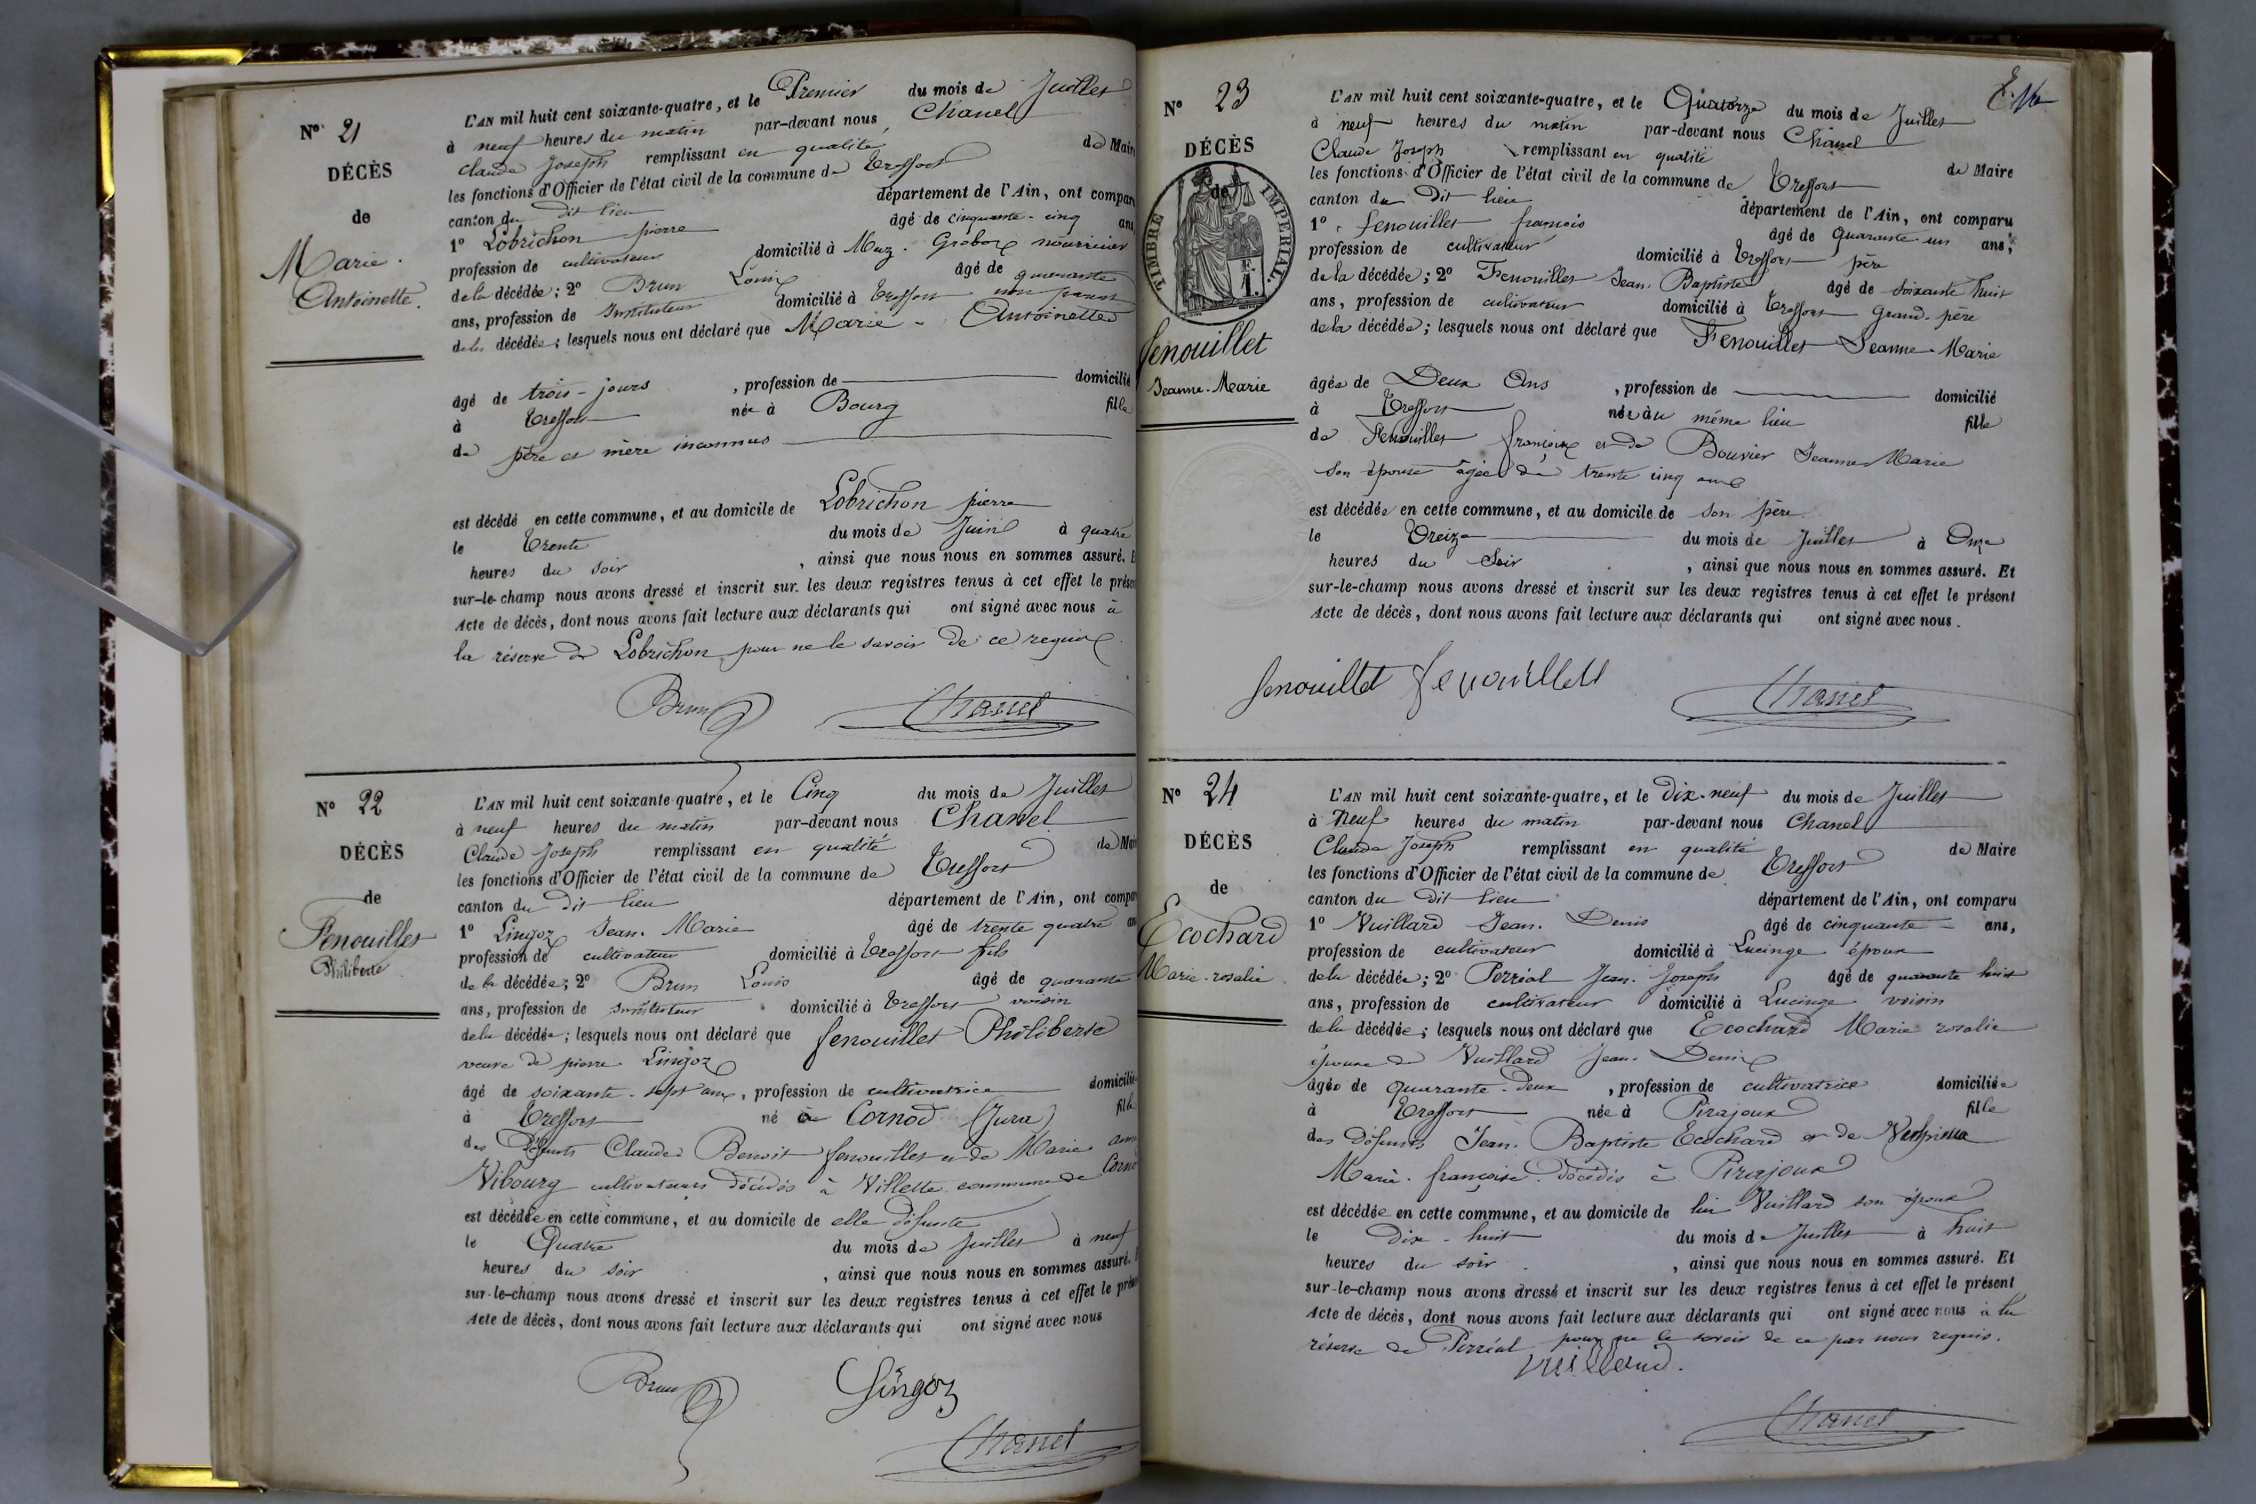 N° 21
DÉCÈS
de
Marie
Antoinette.
L'AN mil huit cent soixante-quatre, et le Premier du mois de Juillet
à neuf heures du matin par-devant nous Chanel
Claude Joseph remplissant en qualité de Maire
les fonctions d'Officier de l'état civil de la commune de Treffort
canton du dit lieu département de l'Ain, ont compar
1° Lobrichon pierre âgé de cinquante-cinq ans
profession de cultivateur domicilié à nourricier
de la décédée; 2° Brun Louis âgé de quarante
ans, profession de Instituteur domicilié à Treffort non parent
de la décédée; lesquels nous ont déclaré que Marie Antoinette
âgé de trois jours, profession de domicilié
à Treffort née à Bourg fille
de père et mère inconnus
est décédé en cette commune, et au domicile de Lobrichon pierre
le Trente du mois de Juin à quatre
heures du soir, ainsi que nous nous en sommes assuré. E
sur-le-champ nous avons dressé et inscrit sur les deux registres tenus à cet effet le prése
Acte de décès, dont nous avons fait lecture aux déclarants qui ont signé avec nous à
la réserve de Lobrichon pour ne le savoir de ce requis
Brun Chanel
N° 22
DÉCÈS
de
Fenouillet
Philiberte
L'AN mil huit cent soixante-quatre, et le Cinq du mois de Juillet
à neuf heures du matin par-devant nous Chanel
Claude Joseph remplissant en qualité de Mair
les fonctions d'Officier de l'état civil de la commune de Treffort
canton du dit lieu département de l'Ain, ont compar
1° Lingoz Jean Marie âgé de trente quatre an
profession de cultivateur domicilié à Treffort fils
de la décédée; 2° Brun Louis âgé de quarante
ans, profession de instituteur domicilié à Treffort voisin
de la décédée; lesquels nous ont déclaré que fenouillet Philiberte
veuve de pierre Lingoz
âgé de soixante-sept ans, profession de cultivatrice domicilié
à Treffort né à Cornod (Jura) fille
des Défunts Claude Benoit fenouillet et de Marie
Vibourg cultivateurs décédés à Villette commune de Corno
est décédée en cette commune, et au domicile de elle défunte
le Quatre du mois de Juillet à neuf
heures du soir, ainsi que nous nous en sommes assuré. E
sur-le-champ nous avons dressé et inscrit sur les deux registres tenus à cet effet le prése
Acte de décès, dont nous avons fait lecture aux déclarants qui ont signé avec nous
Brun Lingoz
Chanel
N° 23
DÉCÈS
de
TIMBRE IMPÉRIAL.
F.
1.
fenouillet
Jeanne-Marie
L'AN mil huit cent soixante-quatre, et le Quatorze du mois de Juillet
à neuf heures du matin par-devant nous Chanel
Claude Joseph remplissant en qualité de Maire
les fonctions d'Officier de l'état civil de la commune de Treffort
canton du Dit lieu département de l'Ain, ont comparu
1° fenouillet françois âgé de quarante-un ans,
profession de cultivateur domicilié à Treffort père
de la décédée; 2° Fenouillet Jean Baptiste âgé de soixante huit
ans, profession de cultivateur domicilié à Treffort Grand-père
de la décédée; lesquels nous ont déclaré que Fenouillet Jeanne-Marie
âgée de Deux Ans, profession de domicilié
à Treffort née au même lieu fille
de Fenouillet françois et de Bouvier Jeanne Marie
son épouse âgée de trente cinq ans
est décédée en cette commune, et au domicile de son père
le Treize du mois de Juillet à Onze
heures du Soir, ainsi que nous nous en sommes assuré. Et
sur-le-champ nous avons dressé et inscrit sur les deux registres tenus à cet effet le présent
Acte de décès, dont nous avons fait lecture aux déclarants qui ont signé avec nous.
fenouillet fenouillet Chanel
N° 24
DÉCÈS
de
Ecochard
Marie-rosalie
L'AN mil huit cent soixante-quatre, et le Dix-neuf du mois de Juillet
à Neuf heures du matin par-devant nous Chanel
Claude Joseph remplissant en qualité de Maire
les fonctions d'Officier de l'état civil de la commune de Treffort
canton du Dit Lieu département de l'Ain, ont comparu
1° Vuillard Jean Denis âgé de cinquante ans,
profession de cultivateur domicilié à Lucinge époux
de la décédée; 2° Perréal Jean Joseph âgé de quarante huit
ans, profession de cultivateur domicilié à Lucinge voisin
de la décédée; lesquels nous ont déclaré que Ecochard Marie rosalie
épouse de Vuillard Jean Denis
âgée de quarante-deux, profession de cultivatrice domiciliée
à Treffort née à Pirajoux fille
des défunts Jean Baptiste Ecochard et de
Marie françoise décédés à Pirajoux
est décédée en cette commune, et au domicile de lui Vuillard son époux
le dix-huit du mois de Juillet à huit
heures du soir, ainsi que nous nous en sommes assuré. Et
sur-le-champ nous avons dressé et inscrit sur les deux registres tenus à cet effet le présent
Acte de décès, dont nous avons fait lecture aux déclarants qui ont signé avec nous à la
réserve de Perréal pour ne le savoir de ce par nous requis.
Vuillard.
Chanel